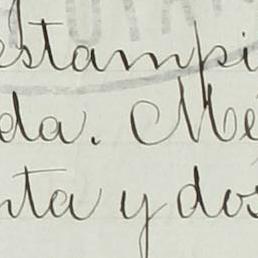 estampi
da. Mé
nta y dos